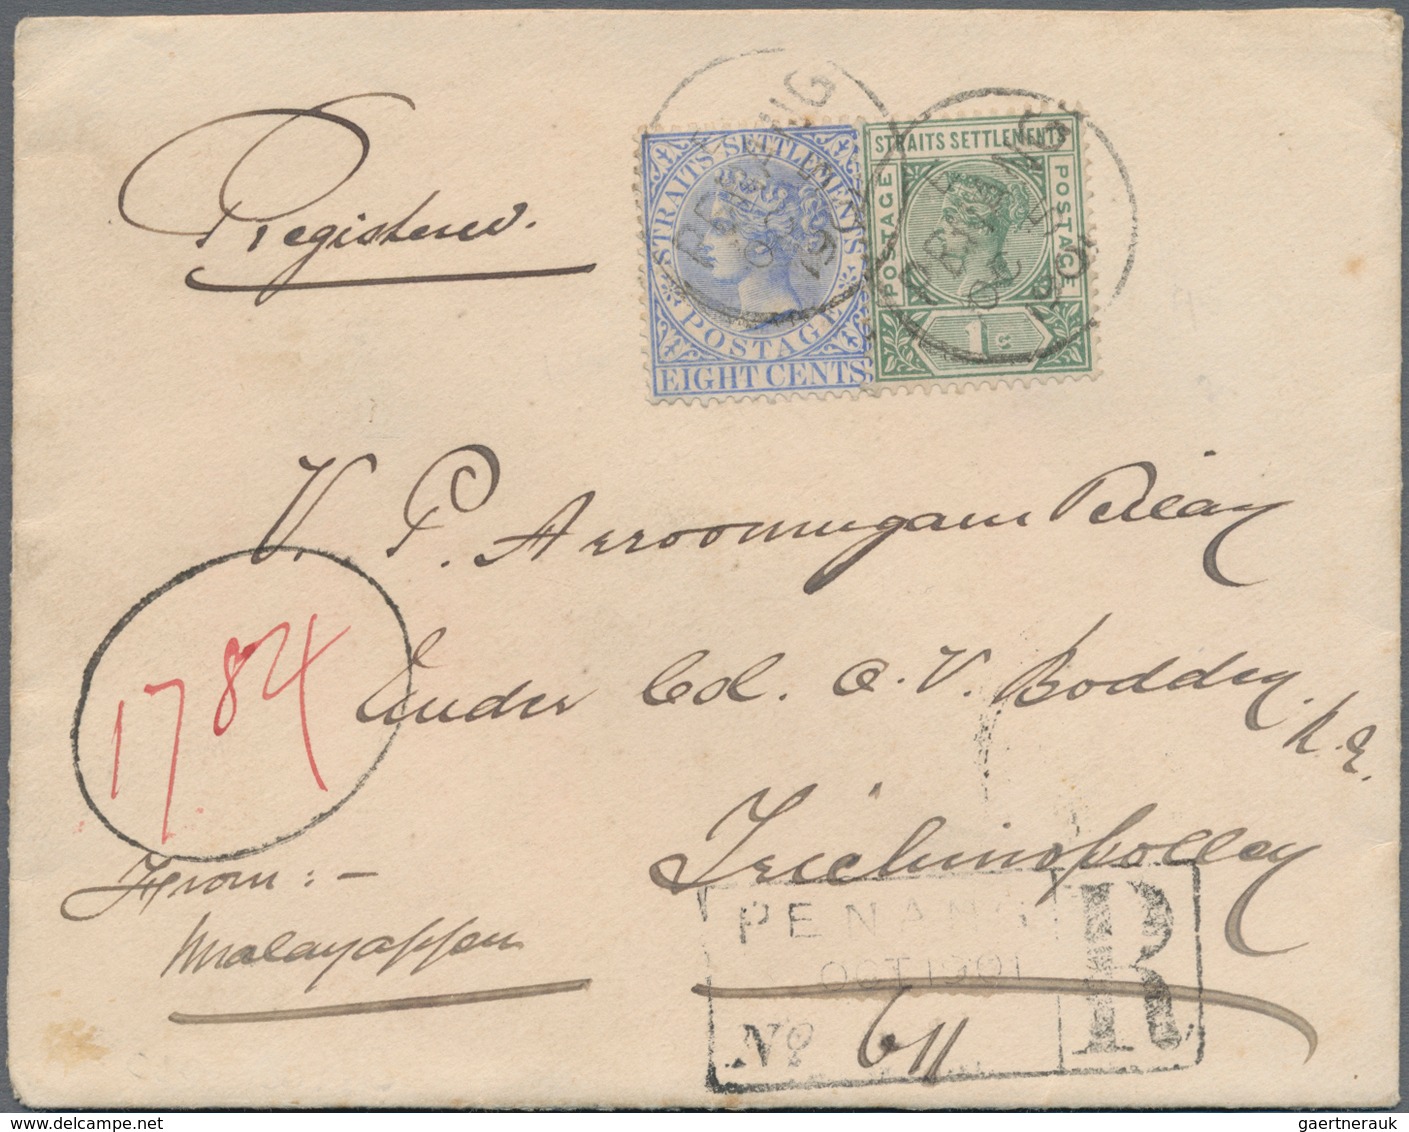 Registered.
STRAITS SETTLEMENTS
POSTAGE
EIGHT CENTS
STRAITS SETTLEMENTS
POSTAGE
POSTAGE
1c
PENANG
OC
1901
V. P. Arroomugam Pillay
Under Col. O. V. Boddey. R.E.
Trichinopolley
1784
From :-
Malayappen
PENANG
OCT 1901
R
No 611
gaertnerauk